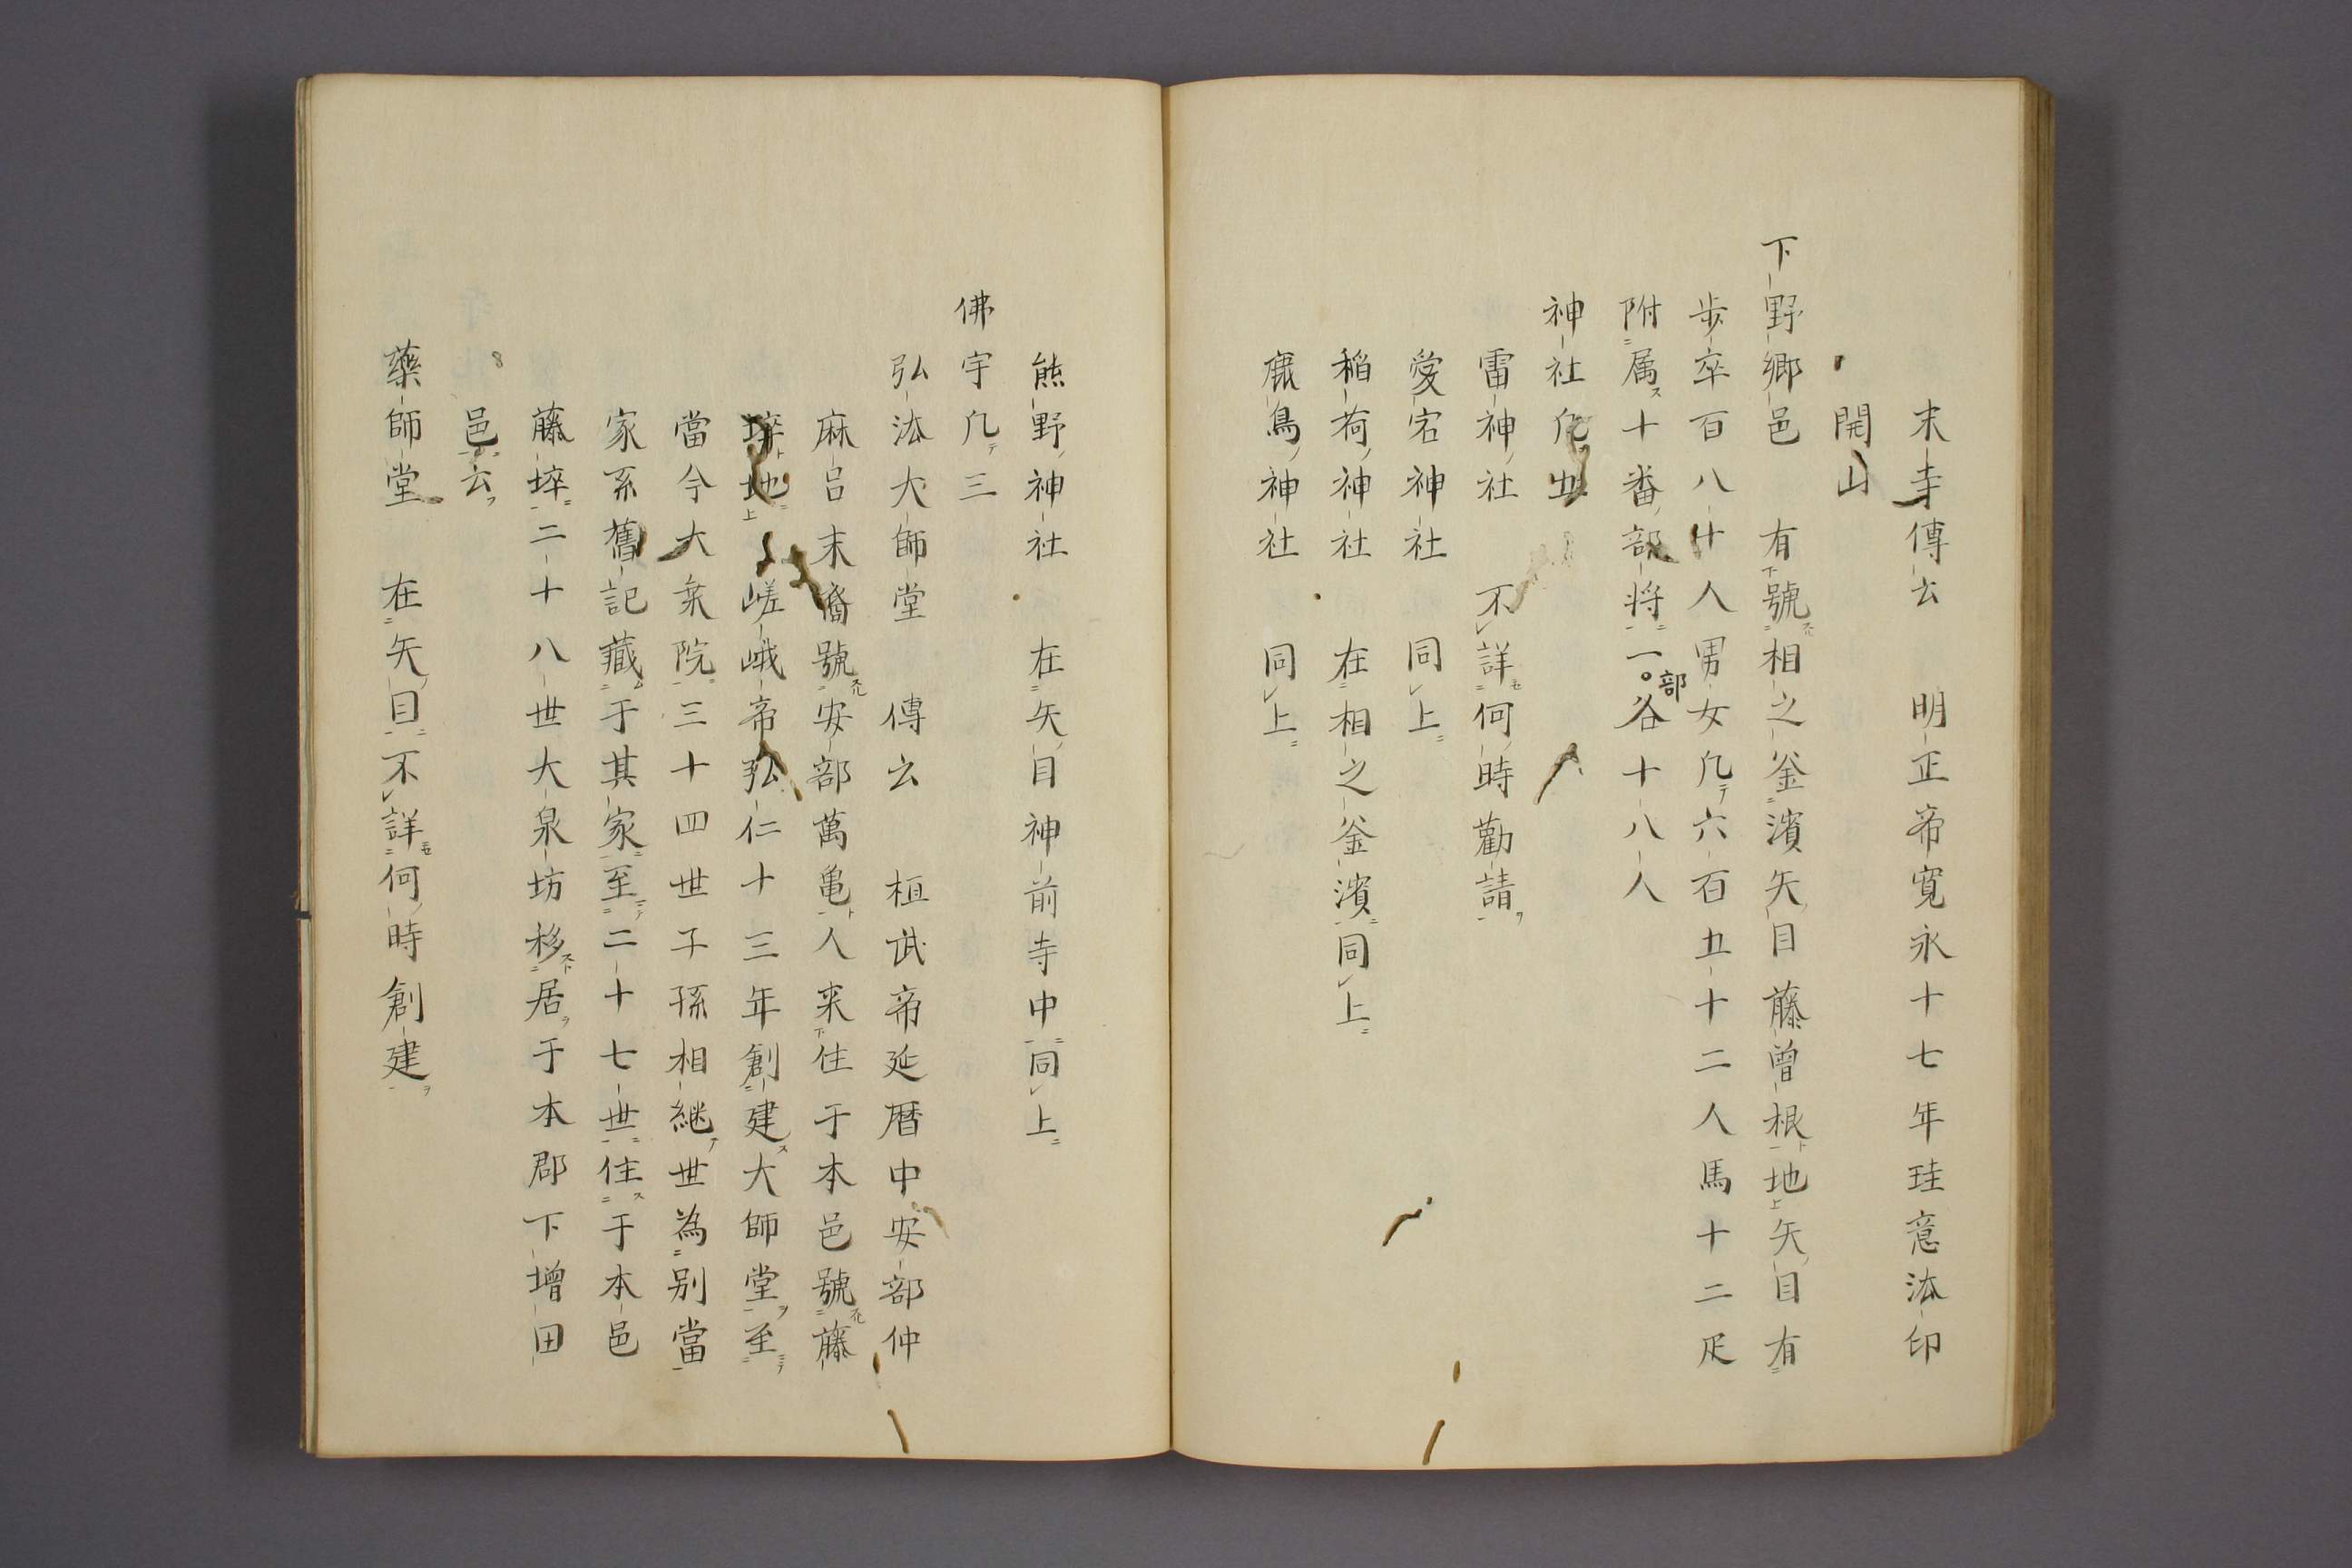 末寺傳云　明正帝寛永十七年珪意法印
開山
下野郷邑　有號相之釜濱矢目藤曾根地矢ノ目有
歩卒百八十人男女凢テ六百五十二人馬十二疋
附属ス十番ノ部将一部谷十八人
神社凢五
雷神ノ社　不詳何ノ時勧請ヲ
愛宕神社　同上
稲荷ノ神社　在相之釜濱同上
鹿島ノ神社　同上
熊野ノ神社　在矢ノ目神前寺中同上
佛宇凢テ三
弘法大師堂　傳云　桓武帝延暦中安部仲
麻呂末裔號安部萬亀ト人来住于本邑號藤
埣ト地　嵯峨帝弘仁十三年創建ス大師堂ヲ至
當今大乗院三十四世子孫相継テ世為別當
家系舊記藏于其家至二十七世住ス于本邑
藤埣二十八世大泉坊移居ヲ于本郡下増田
邑云フ
藥師堂　在矢ノ目不詳何ノ時創建ヲ